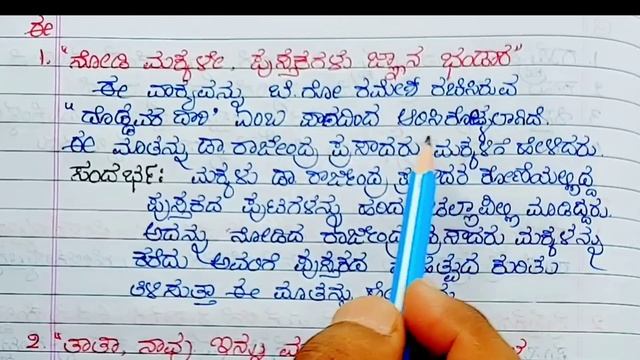 ಈ
1. "ನೋಡಿ ಮಕ್ಕಳೇ, ಪುಸ್ತಕಗಳು ಜ್ಞಾನ ಭಂಡಾರ"
ಈ ವಾಕ್ಯವನ್ನು ಬಿ.ಗೋ ರಮೇಶ ರಚಿಸಿರುವ
"ದೊಡ್ಡವರ ದಾರಿ' ಎಂಬ ಪಾಠದಿಂದ ಆರಿಸಿಕೊಳ್ಳಲಾಗಿದೆ.
ಈ ಮಾತನ್ನು ಡಾ. ರಾಜೇಂದ್ರ ಪ್ರಸಾದರು ಮಕ್ಕಳಿಗೆ ಹೇಳಿದರು.
ಸಂದರ್ಭ: ಮಕ್ಕಳು ಡಾ ರಾಜೇಂದ್ರ ಕೋಣೆಯಲ್ಲಿದ್ದ
ಪುಸ್ತಕದ ಪುಟಗಳನ್ನು ಹರಿದು ಮಾಡಿದ್ದರು.
ಅದನ್ನು ನೋಡಿದ ರಾಜೇಂದ್ರ ಮಕ್ಕಳನ್ನು
ಕರೆದು ಅವರಿಗೆ ಪುಸ್ತಕದ ಕುರಿತು
ತಿಳಿಸುತ್ತಾ ಈ ಮಾತನ್ನು
2. "ತಾತಾ, ನಾವು ಇನ್ನು